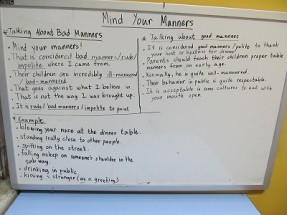 Mind Your Manners
*Talking About Bad Manners
• Mind your manners!
• That is considered bad manners/rude/
impolite where I came from.
• Their children are incredibly ill-mannered
/ bad-mannered.
• That goes against what I believe in.
• That is not the way I was brought up
• It is rude/bad manners/impolite to point
* Example:
• blowing your nose at the dinner table.
• standing really close to other people.
• spitting on the street.
• falling asleep on someone's shoulder in the
subway.
• drinking in public.
• kissing a stranger (as a greeting)
* Talking about good manners
• It is considered good manners/polite to thank
your host or hostess for dinner
• Parents should teach their children proper table
manners from an early age.
• Normally, he is quite well-mannered.
• Their behavior in public is quite respectable.
• It is acceptable in some cultures to eat with
your mouth open.